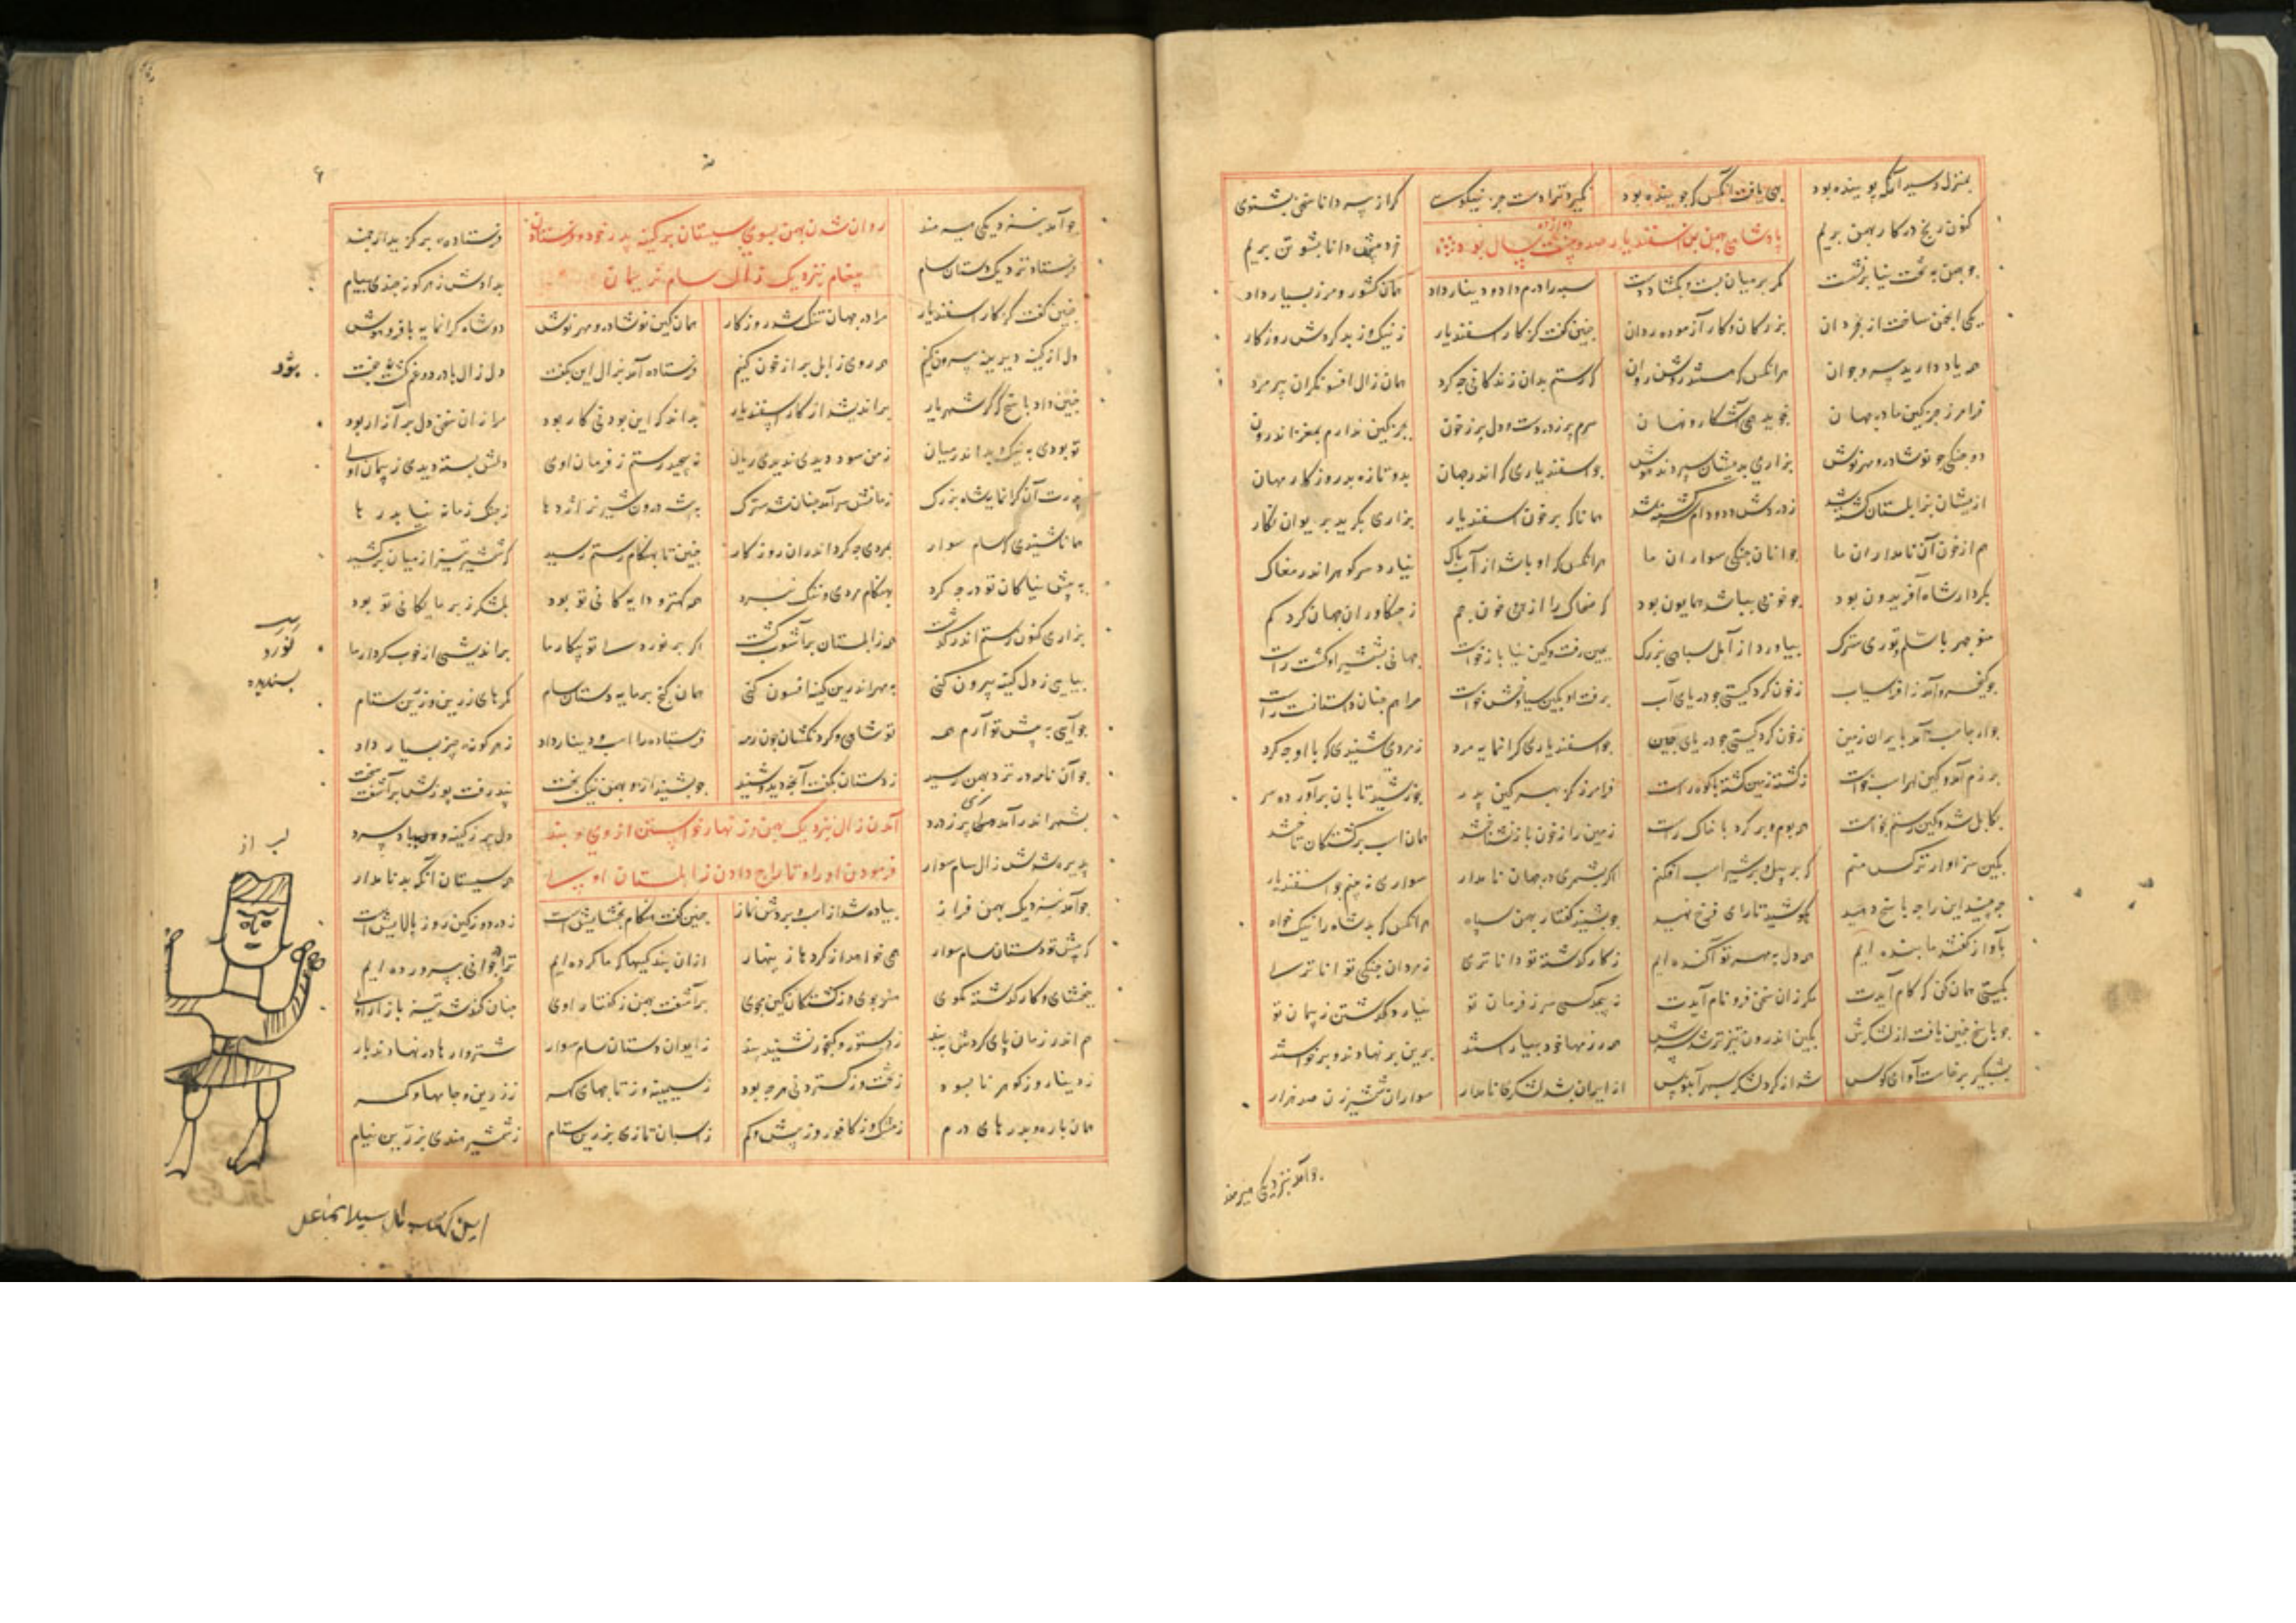 بمنزل رسید آنکه پوینده بود بهی یافت آنکس که جوینده بود نگیرد ترا دست جز نیکوست گر از پیر دانا سخن بشنوی
کنون رنج در کار بهمن بریم پادشاهی بهمن بن اسفندیار صد و سال بود خرد پیش دانا پشوتن بریم
چو بهمن به تخت نیا برنشست کمر بر میان بست و بگشاد دست سپه را درم داد و دینار داد همان کشور و مرز بسیار داد
یکی انجمن ساخت از بخردان بزرگان و کار آزموده ردان چنین گفت کز کار اسفندیار ز نیک و ز بد گردش روزگار
همه یاد دارید پیر و جوان هر آنکس که هستید روشن روان که رستم بدان زندگانی چه کرد همان زال افسونگر آن پیر مرد
فرامرز جز کین ما در جهان نجوید همی آشکار و نهان سرم پر ز دردست و دل پر ز خون بجز کین ندارم بمغز اندرون
دو جنگی چو نوشاذر و مهرنوش بزاری بدیشان سپردند هوش چو اسفندیاری که اندر جهان بدو تازه بد روزگار مهان
ازینشان بزابلستان کشته شد ز دردش دد و دام سرگشته شد همانا که بر خون اسفندیار بزاری بگرید بر ایوان نگار
هم از خون آن نامداران ما جوانان جنگی سواران ما هر آنکس که او باشد از آب پاک نیارد سر گوهر اندر مغاک
بکردار شاه آفریدون بود چو خونی بباشد همایون بود که ضحاک را از پی خون جم ز جنگاوران جهان کرد کم
منوچهر با سلم و تور سترگ بیاورد از آمل سپاهی بزرگ بچین رفت و کین نیا بازخواست جهانی بشمشیر او گشت راست
چو کیخسرو آمد ز افراسیاب ز خون کرد گیتی چو دریای آب برفت او بکین سیاوش خواست مرا هم چنان داستانست راست
ز خون کرد گیتی چو دریای چین چو اسفندیاری گرانمایه مرد ز مردی شنیدی که با او چه کرد
برزم آمد و کین لهراسب خواست ز کشته زمین گشته با کوه راست فرامرز کز بهر کین پدر بخورشید تابان برآورده سر
بکابل شد و کین رستم بخواست همه بوم و بر کرد با خاک راست زمین را ز خون باز نشناختند همان اسب بر کشتگان تاختند
بکین سزاوارتر کس منم که بر پیل و بر شیر اسب افکنم اگر بشمری در جهان نامدار سواری نه بینی چو اسفندیار
چه بینید این را چه پاسخ دهید بکوشید تا رای فرخ نهید چو بشنید گفتار بهمن سپاه هر آنکس که بد شاه را نیک خواه
بآواز گفتند ما بنده ایم همه دل به مهر تو آگنده ایم ز کار گذشته تو داناتری ز مردان جنگی تواناتری
بگیتی همان کن که کام آیدت گر زان سخن فر و نام آیدت نه پیچد کسی سر ز فرمان تو نیارد گذشتن ز پیمان تو
چو پاسخ چنین یافت از لشکرش بکین اندرون تیزتر شد سرش همه رزمها خود بیاراستند برین برنهادند و برخاستند
بشبگیر برخاست آوای کوس شد از گرد لشکر سپهر آبنوس از ایران بشد لشکری نامدار سواران شمشیر زن صد هزار
چو آمد بنزدیکی هیرمند
چو آمد بنزدیکی هیرمند روان شدن بهمن بسوی سیستان بر کینه پدر خود و فرستادن فرستاده برگزید ارجمند
فرستاد نزدیک دستان سام پیغام نزدیک زال سام نریمان بدادش ز هر گونه چندی پیام
چنین گفت کز کار اسفندیار مرا در جهان تنگ شد روزگار همان کین نوشاذر و مهرنوش دو شاه گرانمایه با فر و هوش
دل از کینه دیرینه بیرون کنم همه روی زابل پر از خون کنم فرستاده آمد بزال این بگفت دل زال با درد و غم گشت جفت
چنین داد پاسخ که گر شهریار براندیشد از کار اسفندیار بداند که این بودنی کار بود مرا زان سخن دل پر آزار بود
تو بودی به نیک و بد اندر میان ز من سود دیدی ندیدی زیان نه پیچید رستم ز فرمان اوی دلش بسته دیدی ز پیمان اوی
پدرت آن گرانمایه شاه بزرگ زمانش سرآمد چنان شد سترگ به بیشه درون شیر نر اژدها ز چنگ زمانه نیابد رها
همانا شنیدی که سام سوار بمردی چه کرد اندران روزگار چنین تا بهنگام رستم رسید که شمشیر تیز از میان برکشید
به پیش نیاکان تو در چه کرد بهنگام مردی و ننگ نبرد همه کهتر و دایگانی تو بود بلشکر ز پرمایگانی تو بود
بزاری کنون رستم اندر گذشت همه زابلستان پر آشوب گشت براندیشی از خوب کردار ما
بیایی ز دل کینه بیرون کنی به مهر اندرین کینه افسون کنی همان گنج پرمایه دستان سام کمرهای زرین و زرین ستام
چو آیی به پیش تو آرم همه تو شاهی و گردنکشان چون رمه فرستاده را اسب و دینار داد ز هر گونه چیز بسیار داد
چو آن نامور نزد بهمن رسید ز دستان بگفت آنچه دید و شنید چو بشنید ازو بهمن نیک بخت نپذرفت پوزش برآشفت سخت
بشهر اندر آمد دلی پر ز درد آمدن زال نزدیک بهمن و زنهار خواستن از وی و بند دل پر ز کینه و لب پر ز باد سرد
پذیره شدش زال سام سوار فرمودن او را و تاراج دادن زابلستان او را همه سیستان آنکه بد نامدار
چو آمد بنزدیک بهمن فراز پیاده شد از اسب و بردش نماز چنین گفت هنگام بخشایش است ز درد و ز کین روز پالایش است
که پیش تو دستان سام سوار همی خواهد از کردها زینهار ازان بندگیها که ما کرده ایم ترا در جوانی بپرورده ایم
ببخشای و کار گذشته مگوی هنر جوی و ز کشتگان کین مجوی برآشفت بهمن ز گفتار اوی چنان گند شد تیز بازار اوی
هم اندر زمان پای کردش ببند ز دستور و گنجور نشنید پند ز ایوان دستان سام سوار شتروارها بر نهادند بار
ز دینار و ز گوهر نابسود ز تخت و ز گستردنی هرچه بود ز سیمینه و ز تاجهای به زر ز زرین و جامها و کمر
همان باره و بدرهای درم ز مشک و ز کافور و ز بیش و کم ز اسبان تازی بزرین ستام ز شمشیر هندی بزرین نیام
لب از
این کتاب مال سید اسماعیل